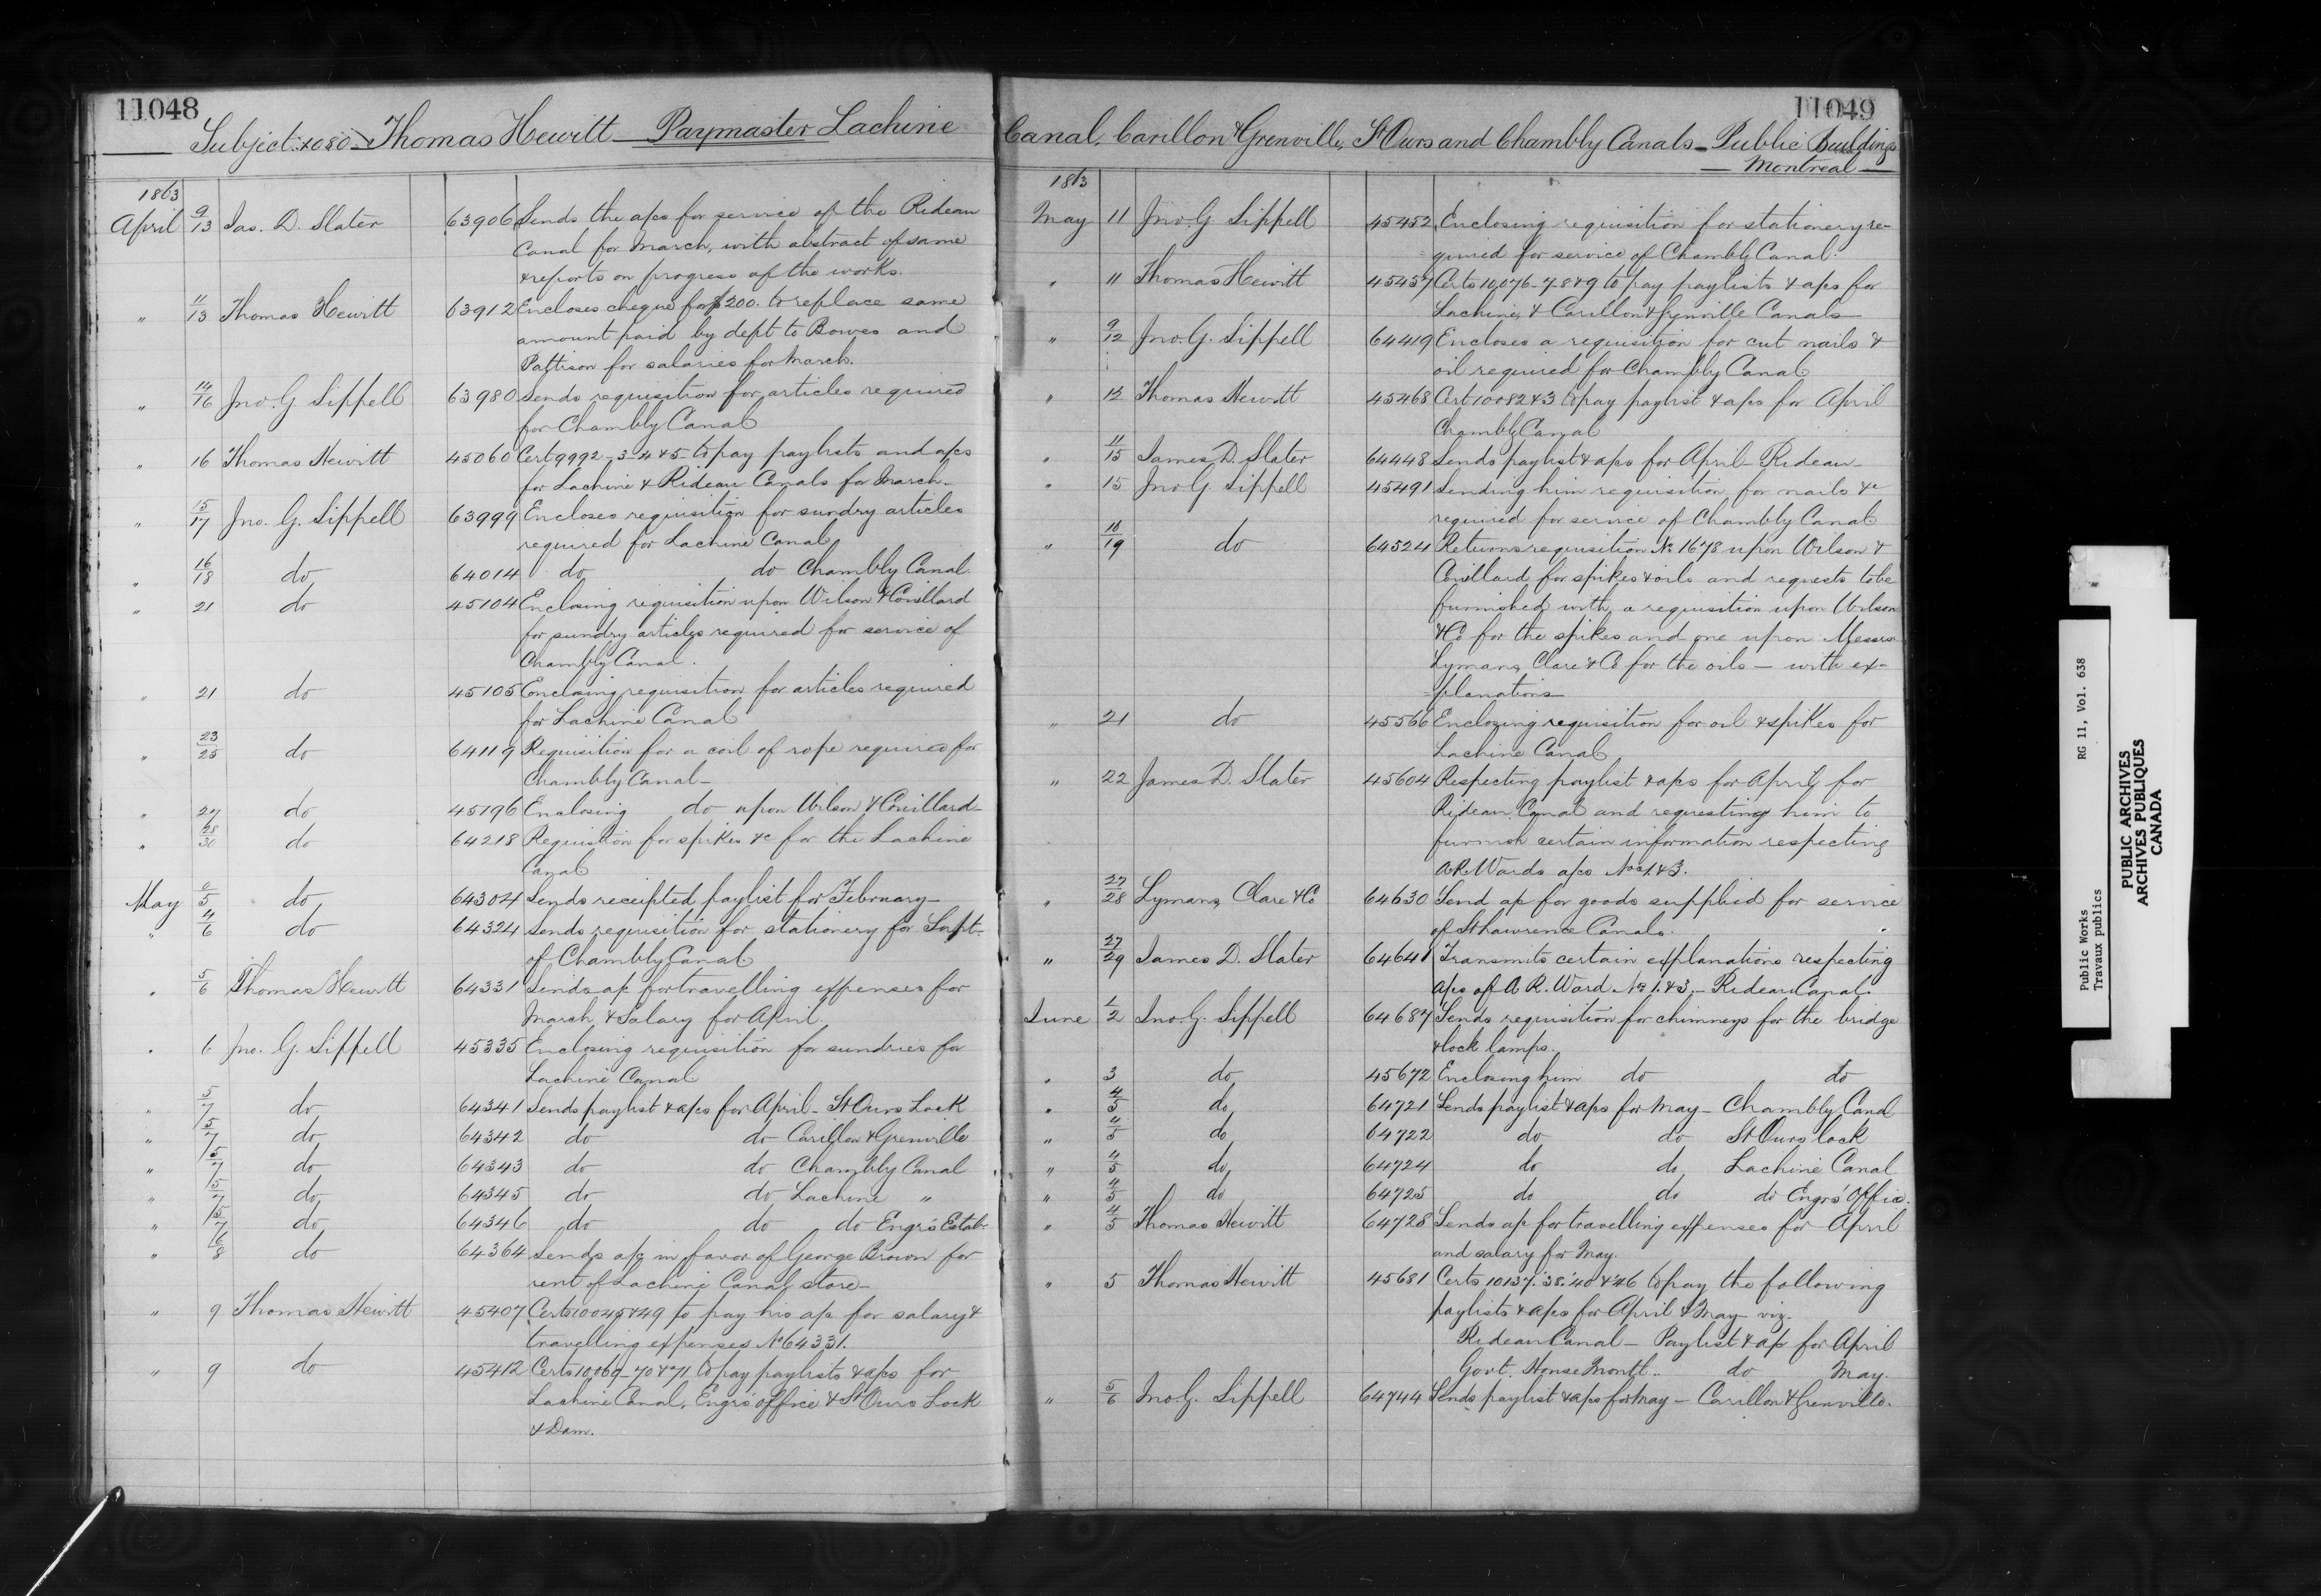 11048
Subject: 1080 Thomas Hewitt — Paymaster Lachine
1863
April 9/13 Jas. D. Slater 63906 Sends the a/cs for service of the Rideau
Canal for March, with abstract of same
& reports on progress of the works.
" 11/13 Thomas Hewitt 63912 Encloses cheque for $200. to replace same
amount paid by dept to Bowes and
Pattison for salaries for March.
" 14/16 Jno. G. Sippell 63980 Sends requisition for articles required
for Chambly Canal
" 16 Thomas Hewitt 45060 Cert 9992-3-4 & 5 to pay paylists and a/cs
for Lachine & Rideau Canals for March.
" 15/17 Jno. G. Sippell 63999 Encloses requisition for sundry articles
required for Lachine Canal
" 16/18 do 64014 do do Chambly Canal.
" 21 do 45104 Enclosing requisition upon Wilson & Couillard
for sundry articles required for service of
Chambly Canal.
" 21 do 45105 Enclosing requisition for articles required
for Lachine Canal
" 23/25 do 64119 Requisition for a coil of rope required for
Chambly Canal—
" 27 do 45196 Enclosing do upon Wilson & Couillard—
" 28/30 do 64218 Requisition for spikes &c for the Lachine
Canal
May /5 do 64304 Sends receipted paylist for February—
" 4/6 do 64324 Sends requisition for stationery for Supt.
of Chambly Canal.
" 5/6 Thomas Hewitt 64331 Sends a/c for travelling expenses for
March & Salary for April.
" 6 Jno. G. Sippell 45335 Enclosing requisition for sundries for
Lachine Canal
" 5/7 do 64341 Sends paylist & a/cs for April - St Ours Lock
" 5/7 do 64342 do do Carillon & Grenville
" 5/7 do 64343 do do Chambly Canal
" 5/7 do 64345 do do Lachine "
" 5/7 do 64346 do do do Engrs Estab.
" 6/8 do 64364 Sends a/c in favor of George Brown for
rent of Lachine Canal store—
" 9 Thomas Hewitt 45407 Certs 10045 & 49 to pay his a/c for salary &
travelling expenses No 64331.
" 9 do 45412 Certs 10,069-70 & 71 to pay paylists & a/cs for
Lachine Canal, Engrs Office & St Ours Lock
& Dam.
11049
Canal, Carillon & Grenville, St Ours and Chambly Canals — Public Buildings
— Montreal —
1863
May 11 Jno. G. Sippell 45452 Enclosing requisition for stationery re-
quired for service of Chambly Canal.
" 11 Thomas Hewitt 45457 Certs 10,076-7-8 & 9 to pay paylists & a/cs for
Lachine, & Carillon & Grenville Canals—
" 9/12 Jno. G. Sippell 64419 Encloses a requisition for cut nails &
oil required for Chambly Canal
" 12 Thomas Hewitt 45468 Cert 10082 & 3 to pay paylist & a/cs for April
Chambly Canal
" 11/15 James D. Slater 64448 Sends paylist & a/cs for April - Rideau—
" 15 Jno G. Sippell 45491 Sending him requisition for nails &c
required for service of Chambly Canal
" 18/19 do 64524 Returns requisition No 1678 upon Wilson &
Couillard for spikes & oils and requests to be
furnished with a requisition upon Wilson
& Co for the spikes and one upon Messrs
Lymans, Clare & Co for the oils — with ex-
-planations
" 21 do 45566 Enclosing requisition for oil & spikes for
Lachine Canal
" 22 James D. Slater 45604 Respecting paylist & a/cs for April for
Rideau Canal and requesting him to
furnish certain information respecting
A.R. Wards a/cs Nos 1 & 3.
" 27/28 Lymans, Clare & Co 64630 Send a/c for goods supplied for service
of St Lawrence Canals.
" 27/29 James D. Slater 64641 Transmits certain explanations respecting
a/cs of A. R. Ward Nos 1 & 3 - Rideau Canal.
June 1/2 Jno. G. Sippell 64687 Sends requisition for chimneys for the bridge
& lock lamps.
" 3 do 45672 Enclosing him do do
" 4/5 do 64721 Sends paylist & a/cs for May - Chambly Canal
" 4/5 do 64722 do do St Ours lock
" 4/5 do 64724 do do Lachine Canal
" 4/5 do 64725 do do do Engrs' Office.
" 4/5 Thomas Hewitt 64728 Sends a/c for travelling expenses for April
and salary for May.
" 5 Thomas Hewitt 45681 Certs 10137.'38.'40 & '46 to pay the following
paylists & a/cs for April & May viz.
Rideau Canal — Paylist & a/c for April
Govt. House Montl.. do May.
" 5/6 Jno. G. Sippell 64744 Sends paylist & a/cs for May — Carillon & Grenville.
Public Works RG 11, Vol. 638
Travaux publics
PUBLIC ARCHIVES
ARCHIVES PUBLIQUES
CANADA